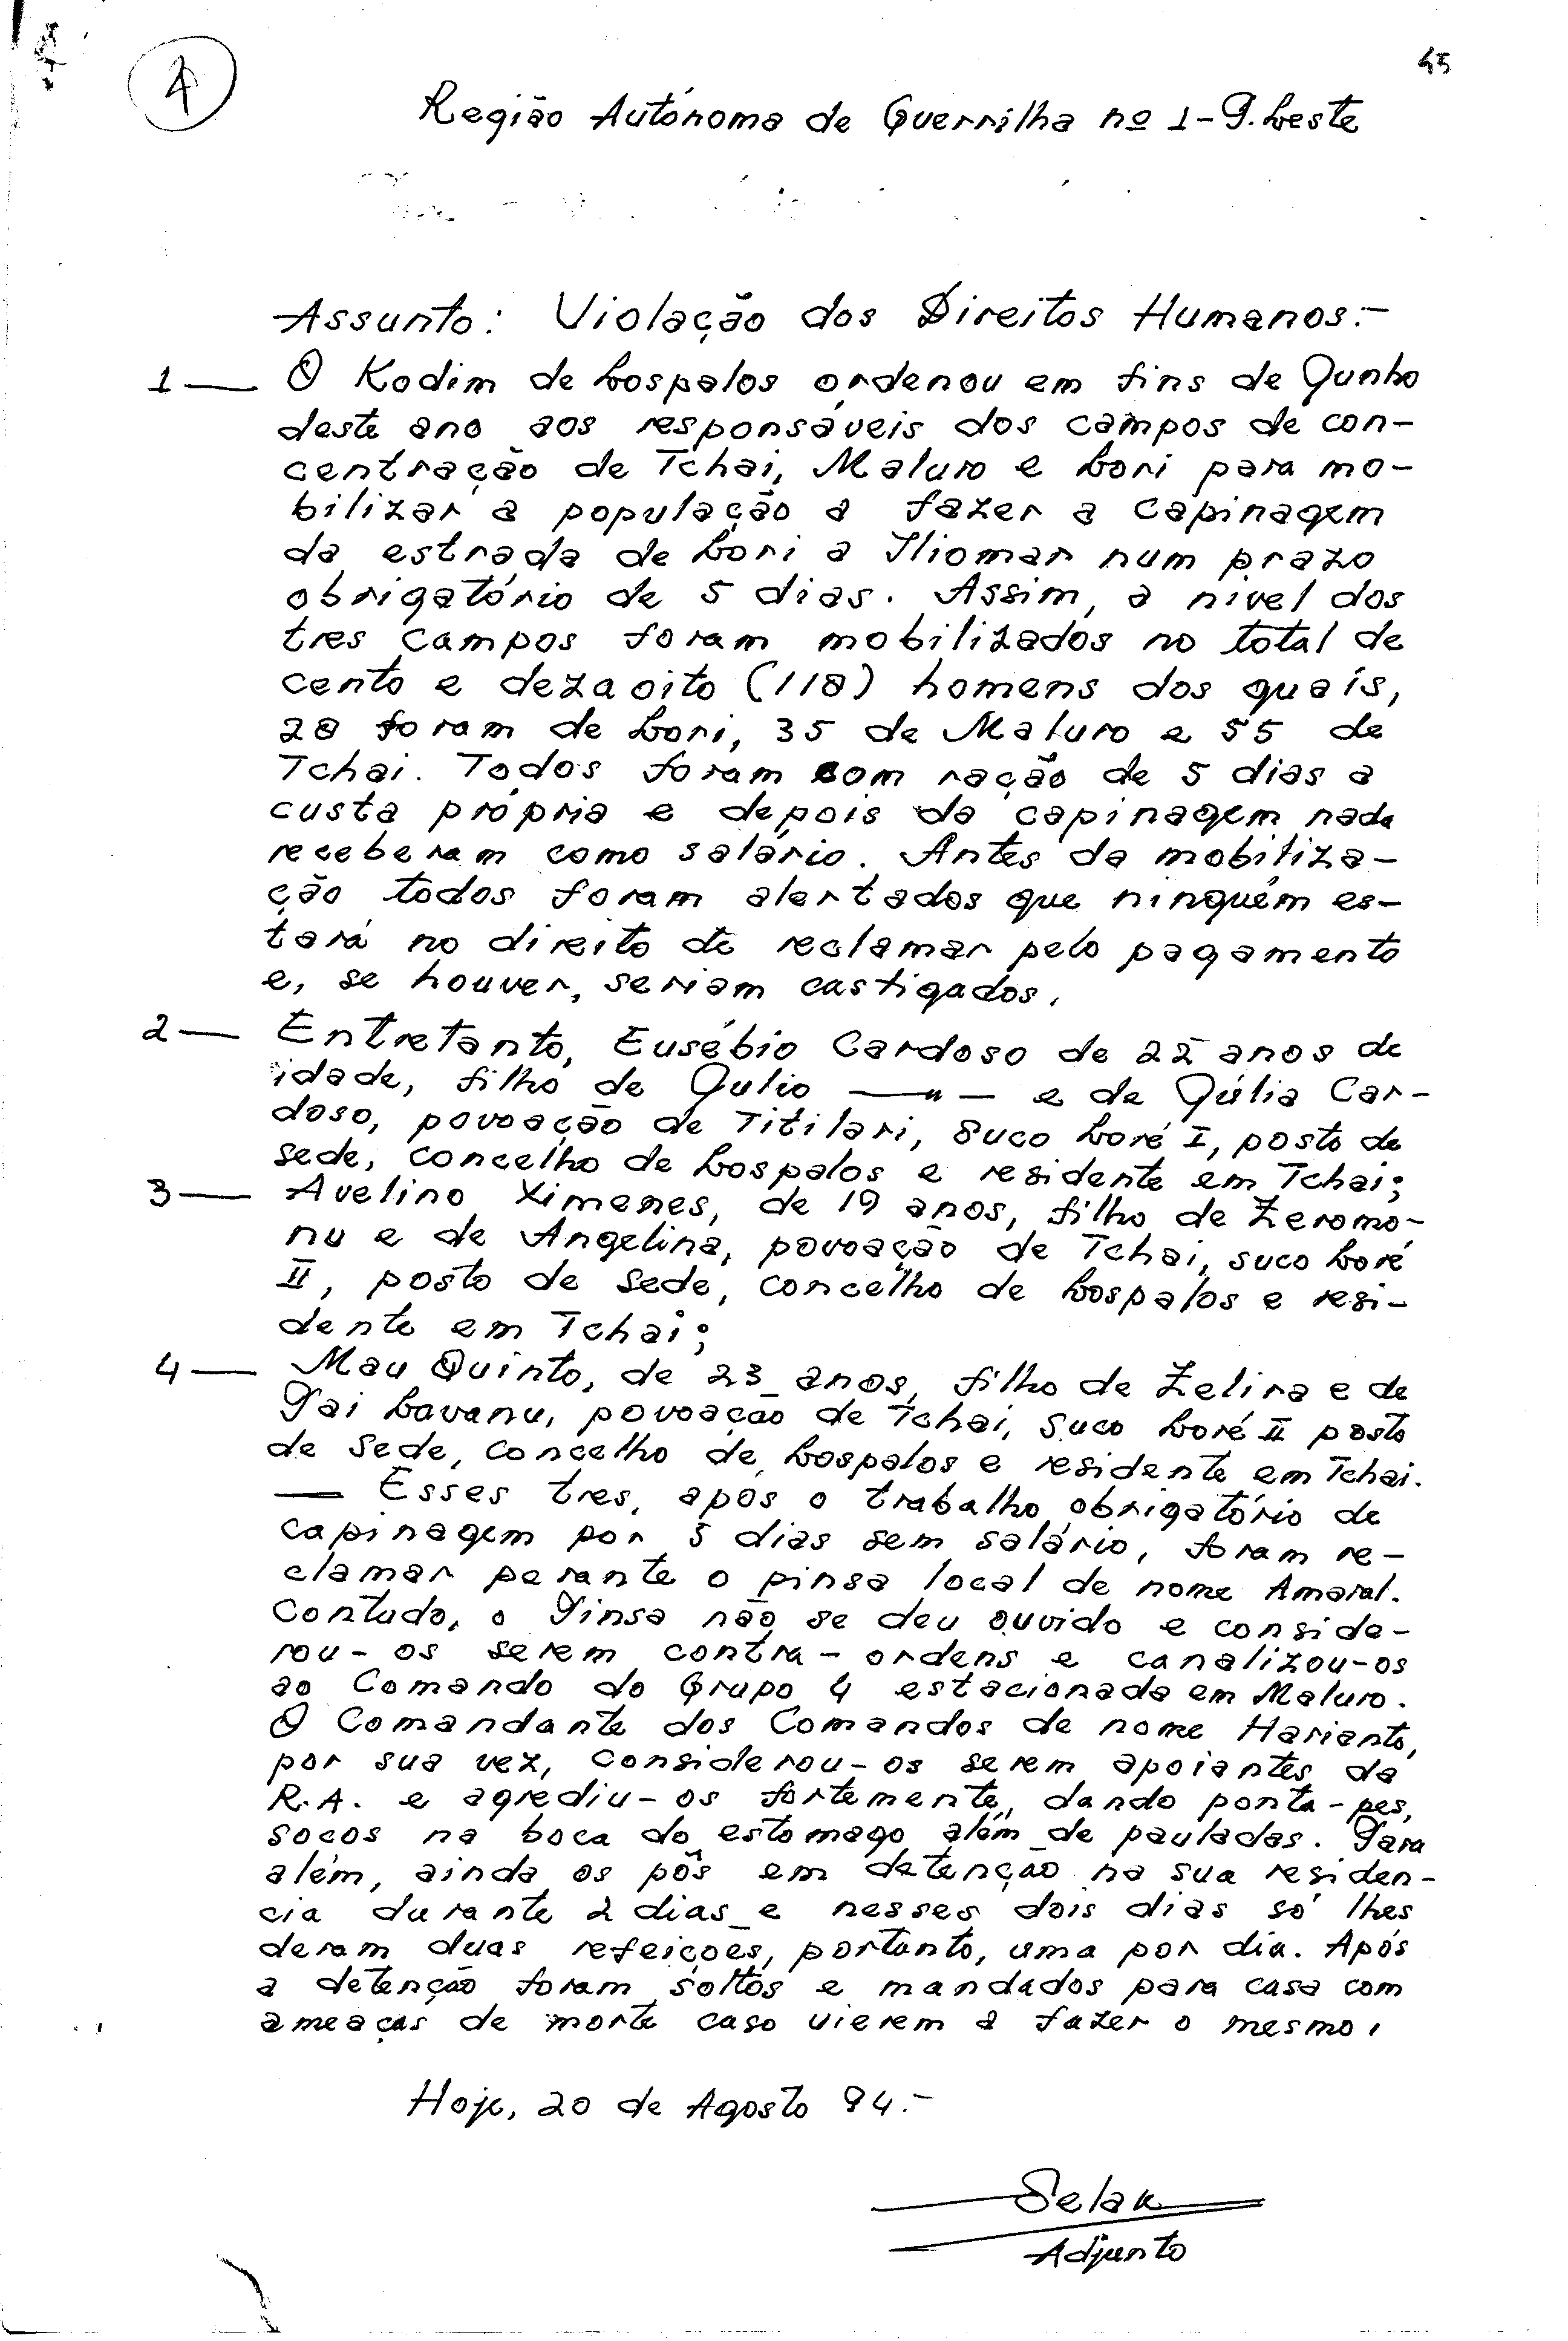 4
45
Região Autónoma de Guerrilha nº 1 - P. Leste
Assunto: Violação dos Direitos Humanos.-
1 — O Kodim de Lospalos ordenou em fins de Junho
deste ano aos responsáveis dos campos de con-
centração de Tchai, Maluro e Lori para mo-
bilizar a população a fazer a capinagem
da estrada de Lori a Iliomar num prazo
obrigatório de 5 dias. Assim, a nivel dos
tres campos foram mobilizados no total de
cento e dezaoito (118) homens dos quais,
28 foram de Lori, 35 de Maluro e 55 de
Tchai. Todos foram com ração de 5 dias a
custa própria e depois da capinagem nada
receberam como salário. Antes da mobiliza-
ção todos foram alertados que ninguém es-
tará no direito de reclamar pelo pagamento
e, se houver, seriam castigados.
2 — Entretanto, Eusébio Cardoso de 22 anos de
idade, filho de Julio — " — e de Júlia Car-
doso, povoação de Titilari, suco Loré I, posto de
sede, concelho de Lospalos e residente em Tchai;
3 — Avelino Ximenes, de 19 anos, filho de Zeromo-
nu e de Angelina, povoação de Tchai, suco Loré
II, posto de sede, concelho de Lospalos e resi-
dente em Tchai;
4 — Mau Quinto, de 23 anos, filho de Zelira e de
Pai Lavanu, povoação de Tchai, suco Loré II posto
de sede, concelho de Lospalos e residente em Tchai.
— Esses tres, após o trabalho obrigatório de
capinagem por 5 dias sem salário, foram re-
clamar perante o pinsa local de nome Amaral.
Contudo, o Pinsa não se deu ouvido e conside-
rou-os serem contra-ordens e canalizou-os
ao Comando do Grupo 4 estacionado em Maluro.
O Comandante dos Comandos de nome Harianto,
por sua vez, considerou-os serem apoiantes da
R.A. e agrediu-os fortemente, dando ponta-pés,
socos na boca do estomago além de pauladas. Para
além, ainda os pôs em detenção na sua residen-
cia durante 2 dias e nesses dois dias só lhes
deram duas refeições, portanto, uma por dia. Após
a detenção foram soltos e mandados para casa com
ameaças de morte caso vierem a fazer o mesmo.
Hoje, 20 de Agosto 94.-
Selak
Adjunto